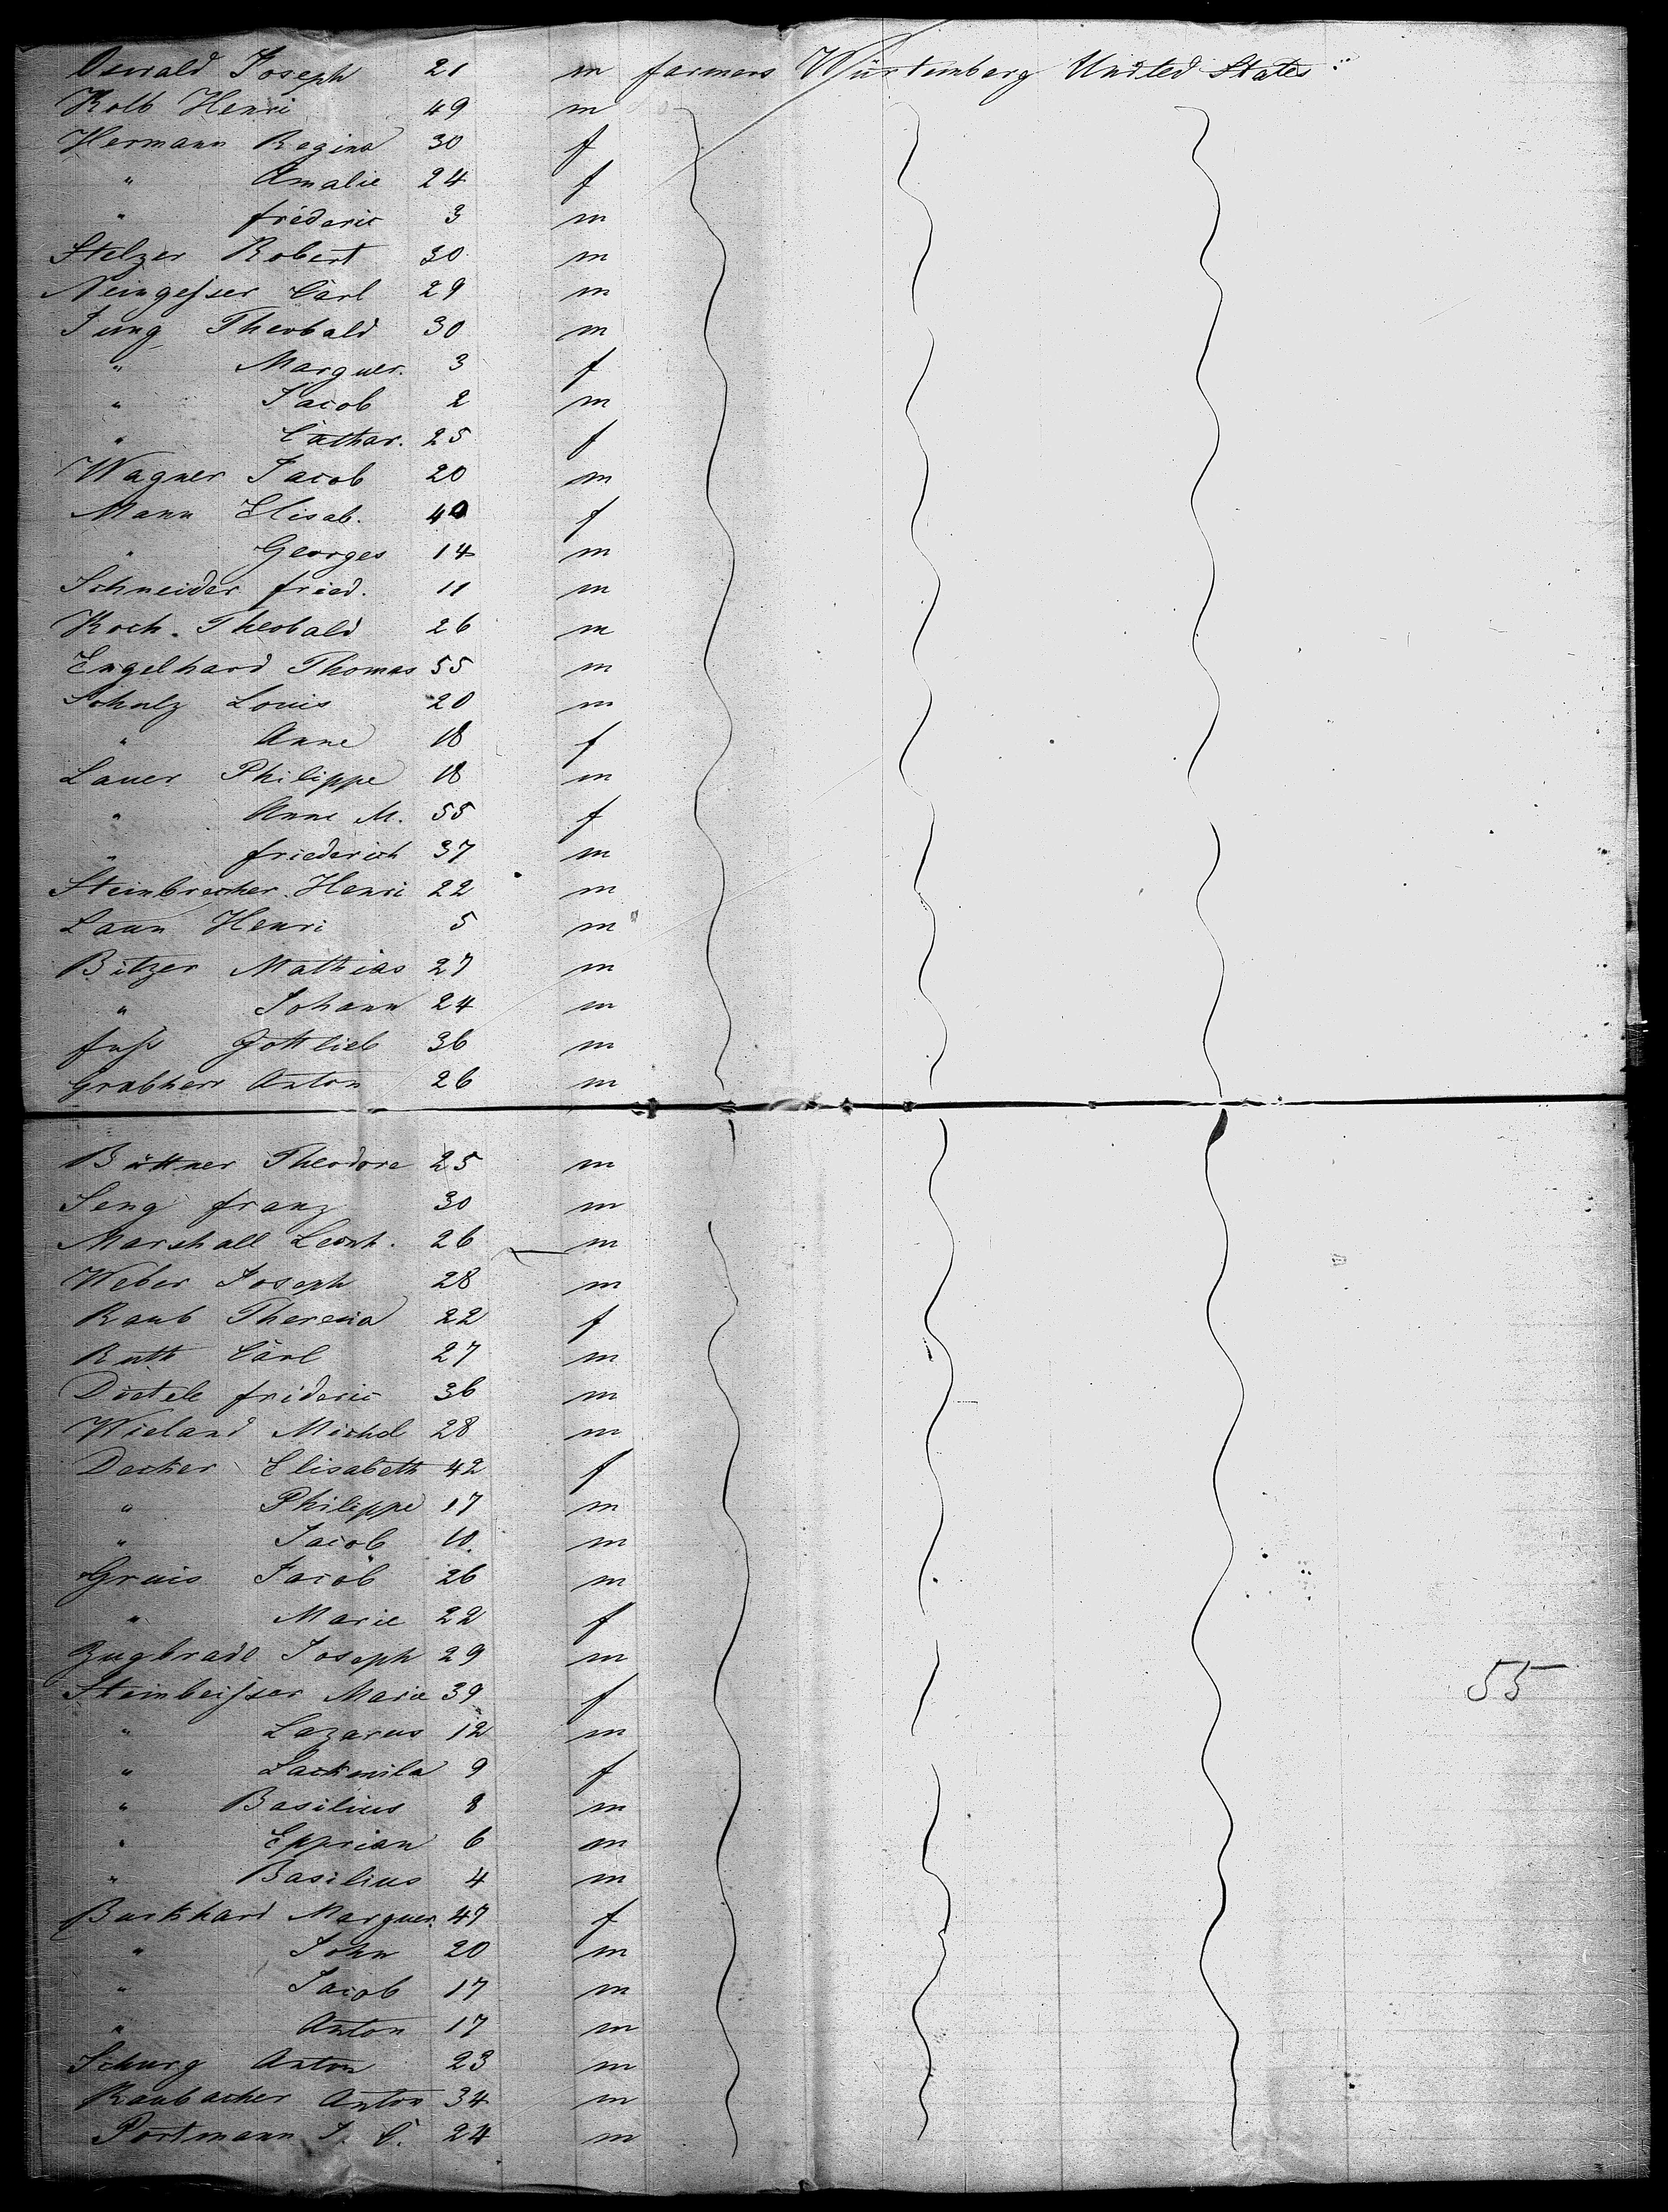 Oswald Joseph 21 m farmers Würtemberg United States
Kolb Henri 49 m
Hermann Regina 30 f
" Amalie 24 f
" fréderic 3 m
Stelzer Robert 30 m
Neingesser Carl 29 m
Jung Theobald 30 m
" Marguer. 3 f
" Jacob 2 m
" Cathar. 25 f
Wagner Jacob 20 m
Mann Elisab. 40 f
" Georges 14 m
Schneider fried. 11 m
Koch. Theobald 26 m
Engelhard Thomas 55 m
Schulz Louis 20 m
" Anne 18 f
Lauer Philippe 18 m
" Anne M. 55 f
" friederich 37 m
Steinbrecher Henri 22 m
Laun Henri 5 m
Bitzer Mathias 27 m
" Johann 24 m
fuss Gottlieb 36 m
Grabherr Anton 26 m
Büttner Theodore 25 m
Seng franz 30 m
Marshall Leonh. 26 m
Weber Joseph 28 m
Raub Theresia 22 f
Ruth Carl 27 m
Dietele frideric 36 m
Wieland Michel 28 m
Decker Elisabeth 42 f
" Philippe 17 m
" Jacob 10 m
Gruis Jacob 26 m
" Marie 22 f
Zugbrade Joseph 29 m
Steinbeisser Marie 39 f 55
" Lazarus 12 m
" 9 f
" Basilius 8 m
" Epprian 6 m
" Basilius 4 m
Burkhard Marguer. 47 f
" John 20 m
" Jacob 17 m
" Anton 17 m
Schurg Anton 23 m
Raubacher Anton 34 m
Portmann J. C. 24 m